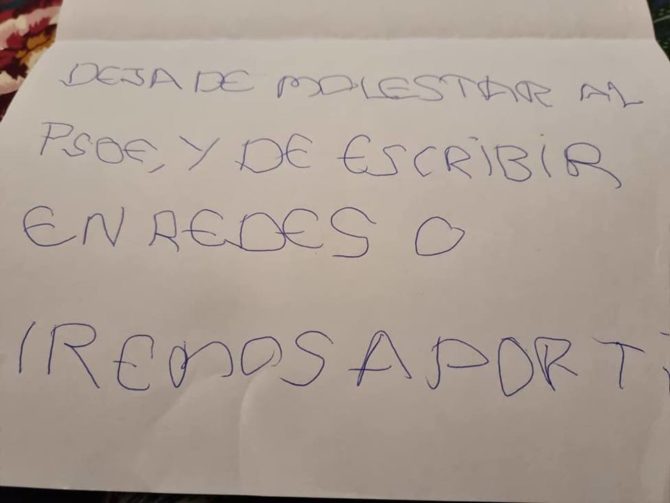 DEJA DE MOLESTAR AL
PSOE, Y DE ESCRIBIR
EN REDES O
IREMOS A POR TI